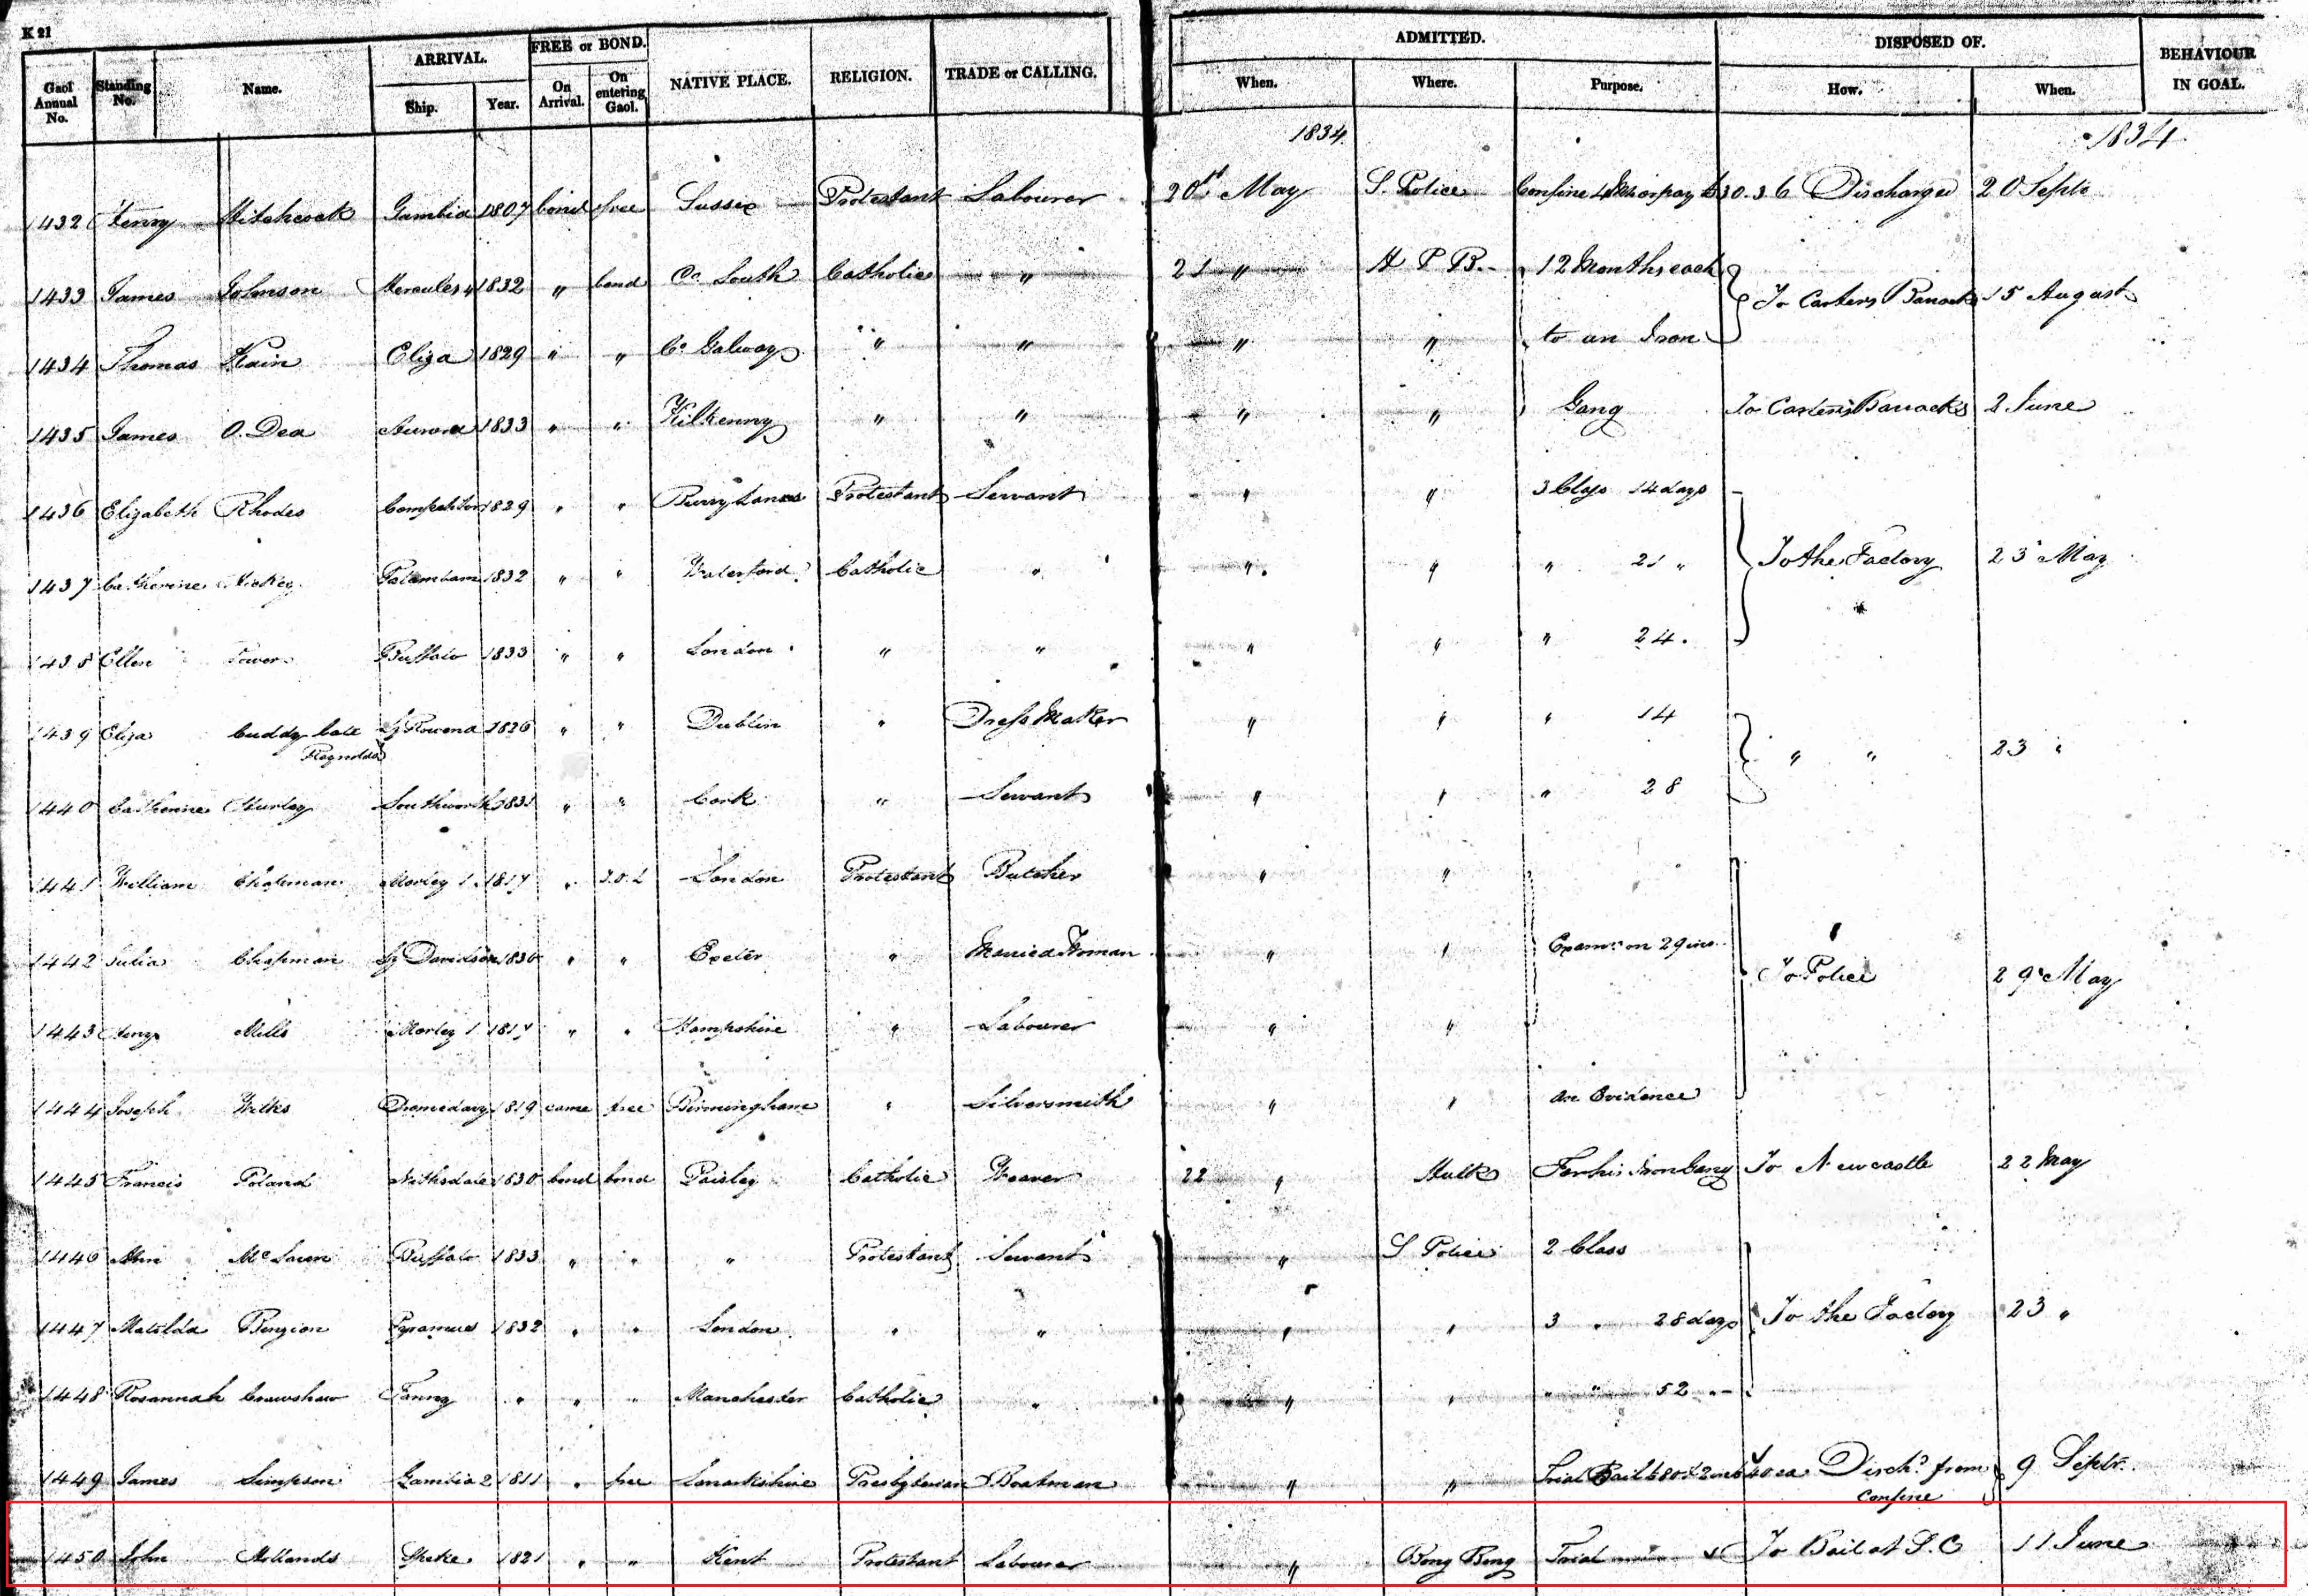 K 21
ARRIVAL. FREE or BOND. ADMITTED. DISPOSED OF.
Gaol Annual No. Standing No. Name. Ship. Year. On Arrival. On entering Gaol. NATIVE PLACE. RELIGION. TRADE or CALLING. When. Where. Purpose. How. When. BEHAVIOUR IN GOAL.
1834 1834
1432 Henry Hitchcock Gambia 1807 bond free Sussex Protestant Labourer 20th May S. Police Confine 4 Ms or pay £30.3.6 Discharged 20 Septr
1433 James Johnson Hercules 4 1832 " bond Co Louth Catholic " 21 " H P B. 12 Months each To Carters Barracks 15 August
1434 Thomas Kain Eliza 1829 " " Co Galway " " " " to an Iron
1435 James O. Dea Aurora 1833 " " Kilkenny " " " " Gang To Carters Barracks 2 June
1436 Elizabeth Rhodes Competitor 1829 " " Protestant Servant " " 3 Class 14 days
1437 Catherine Hickey Palambam 1832 " " Waterford Catholic " " " " 21 " To the Factory 23 May
1438 Ellen Power Buffalo 1833 " " London " " " " " 24
1439 Eliza Cuddy late Reynolds Ly Rowena 1826 " " Dublin " Dress Maker " " " 14 " " 23 "
1440 Catherine Hurley Southworth 1831 " " Cork " Servant " " " 28
1441 William Chapman Morley 1 1817 " T.O.L London Protestant Butcher " "
1442 Julia Chapman Sy Davidson 1830 " " Exeter " Married Woman " " Examn on 29 ins To Police 29 May
1443 Henry Mills Morley 1 1817 " " Hampshire " Labourer " "
1444 Joseph Wilks Dromedary 1819 came free Birmingham " Silversmith " " An Evidence
1445 Francis Poland Nithsdale 1830 bond bond Paisley Catholic Weaver 22 " Hulk For his Iron Gang To Newcastle 22 May
1446 Ann Buffalo 1833 " " " Protestant Servant " S Police 2 Class
1447 Matilda Benzion Pyramus 1832 " " London " " " " 3 " 28 days To the Factory 23 "
1448 Rosannah Crawshaw Fanny " " " Manchester Catholic " " " " " 52 "
1449 James Simpson Gambia 2 1811 " free Lanarkshire Presbyterian Boatman " " Trial Bail £80 & 2 in £40 ea Dischd from Confine 9 Septr.
1450 John Mollands Shipley 1821 " " Kent Protestant Labourer " Bong Bong Trial To Bail at S. C 11 June